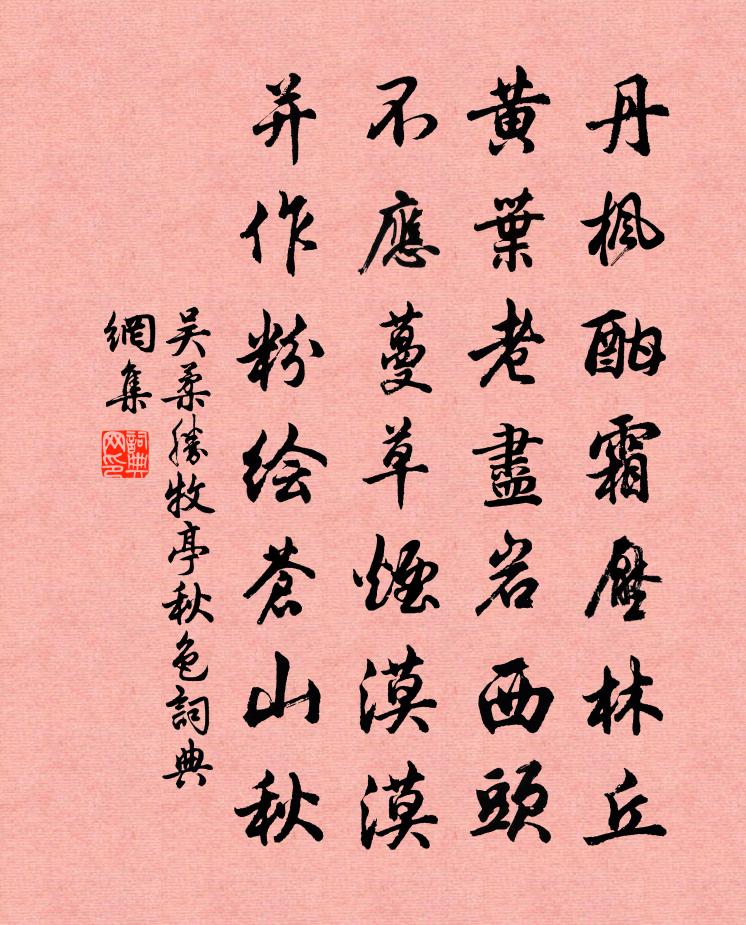 丹枫酣霜壓林丘
黄葉老盡岩西頭
不應蔓草煙漠漠
并作粉绘蒼山秋
吴柔勝牧亭秋色詞典
網集
詞典網印